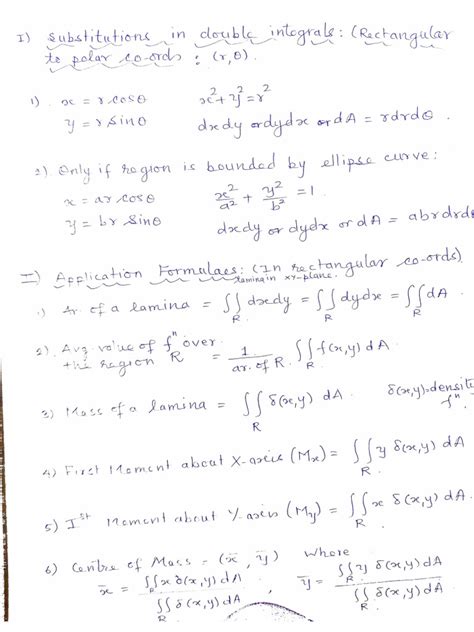 I) Substitutions in double integrals: (Rectangular
to polar co-ords : (r,θ).
1) x = r cosθ    x²+y²=r²
y = r sinθ    dxdy or dydx or dA = rdrdθ.
2) Only if region is bounded by ellipse curve:
x = ar cosθ    x²/a² + y²/b² = 1.
y = br sinθ    dxdy or dydx or dA = abrdrdθ
II) Application Formulaes: (In rectangular co-ords)
lamina in xy-plane.
1) Ar. of a lamina = ∬_R dxdy = ∬_R dydx = ∬_R dA
2) Avg value of fⁿ over
the region R = 1/ar. of R . ∬_R f(x,y) dA
3) Mass of a lamina = ∬_R δ(x,y) dA    δ(x,y)→densit
fⁿ.
4) First Moment about X-axis (Mx) = ∬_R y δ(x,y) dA
5) Iˢᵗ Moment about Y-axis (My) = ∬_R x δ(x,y) dA.
6) Centre of Mass = (x̄, ȳ) where
x̄ = ∬_R x δ(x,y) dA / ∬ δ(x,y) dA    ȳ = ∬_R y δ(x,y) dA / ∬_R δ(x,y) dA